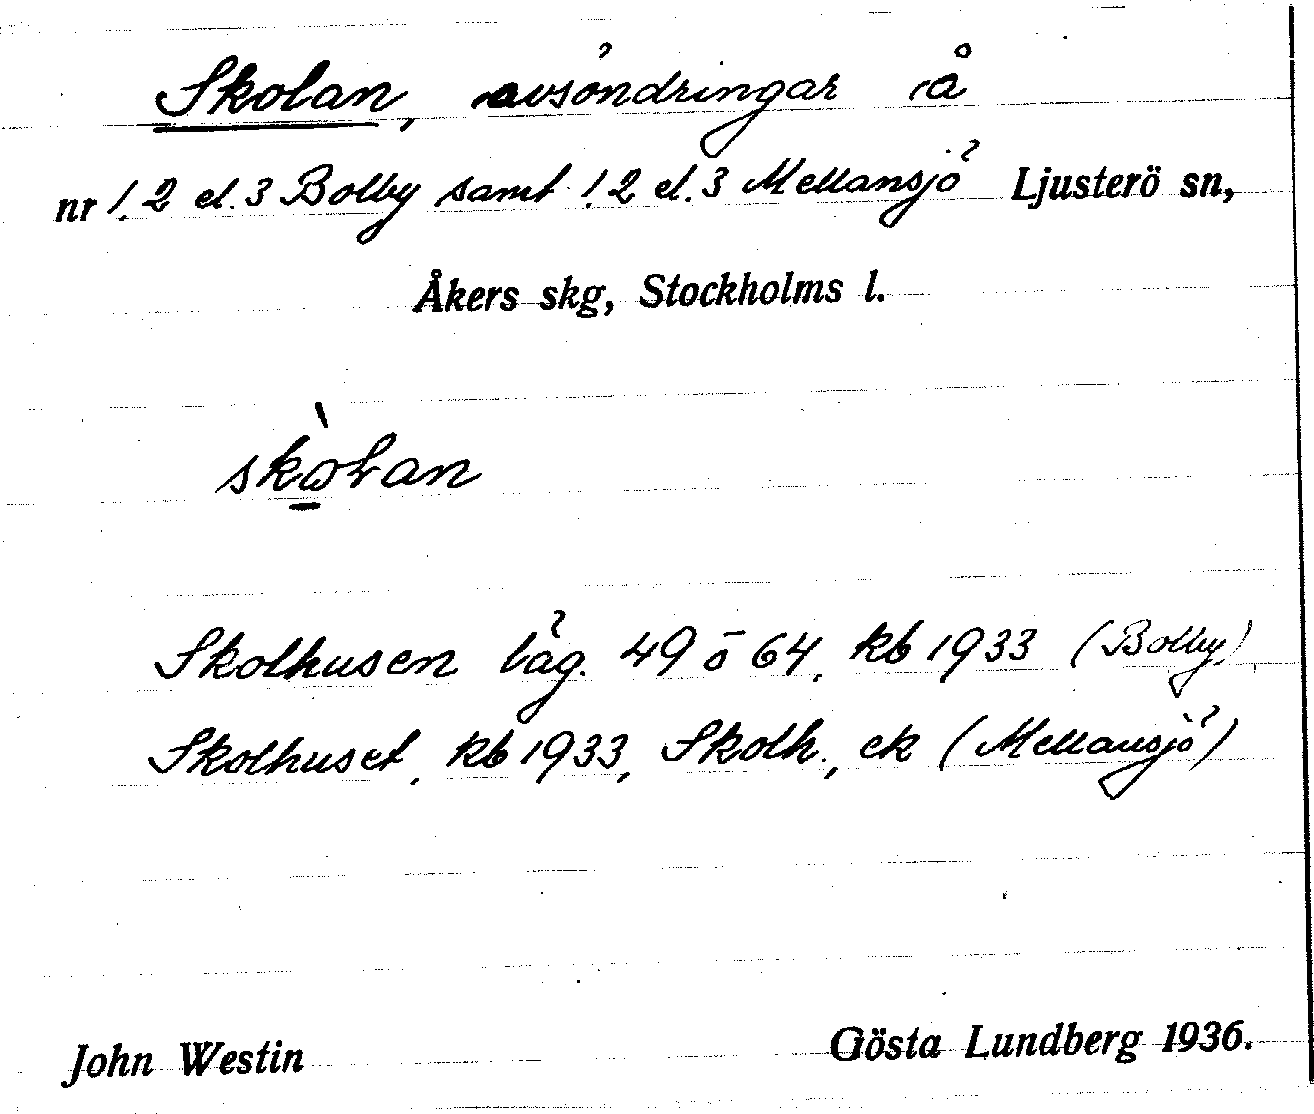 Skolan, avsöndringar å
nr 1, 2 el. 3 Bolby samt 1, 2 el. 3 Mellansjö Ljusterö sn,
Åkers skg, Stockholms l.
skò̱lan
Skolhusen läg. 49 o 64, kb 1933 (Bolby)
Skolhuset, kb 1933, Skolh., ek (Mellansjö)
John Westin Gösta Lundberg 1936.